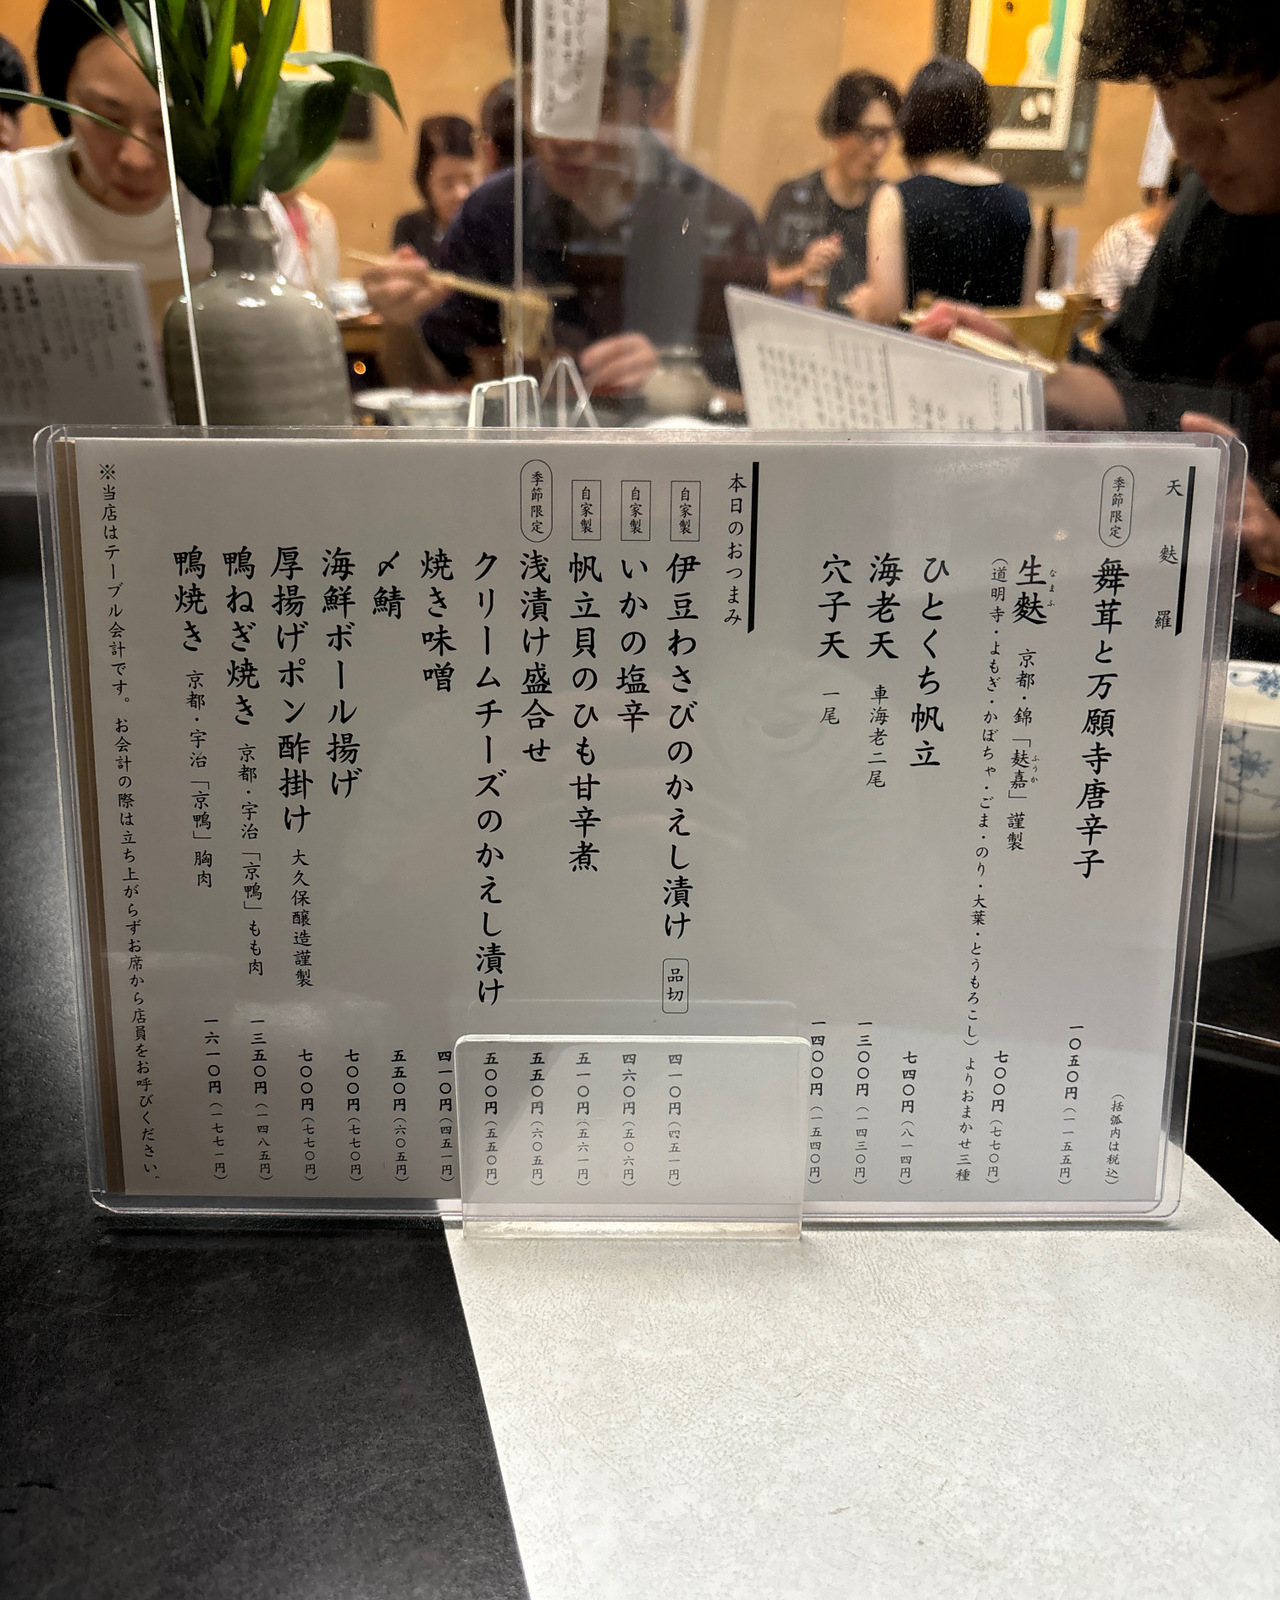 天麩羅
(括弧内は税込)
季節限定 舞茸と万願寺唐辛子 一〇五〇円(一一五五円)
生麩 なまふ 京都・錦「麩嘉」ふうか 謹製 七〇〇円(七七〇円)
(道明寺・よもぎ・かぼちゃ・ごま・のり・大葉・とうもろこし)よりおまかせ三種
ひとくち帆立 七四〇円(八一四円)
海老天 車海老二尾 一三〇〇円(一四三〇円)
穴子天 一尾 一四〇〇円(一五四〇円)
本日のおつまみ
自家製 伊豆わさびのかえし漬け 品切 四一〇円(四五一円)
自家製 いかの塩辛 四六〇円(五〇六円)
自家製 帆立貝のひも甘辛煮 五一〇円(五六一円)
季節限定 浅漬け盛合せ 五五〇円(六〇五円)
クリームチーズのかえし漬け 五〇〇円(五五〇円)
焼き味噌 四一〇円(四五一円)
〆鯖 五五〇円(六〇五円)
海鮮ボール揚げ 七〇〇円(七七〇円)
厚揚げポン酢掛け 大久保醸造謹製 七〇〇円(七七〇円)
鴨ねぎ焼き 京都・宇治「京鴨」もも肉 一三五〇円(一四八五円)
鴨焼き 京都・宇治「京鴨」胸肉 一六一〇円(一七七一円)
※当店はテーブル会計です。お会計の際は立ち上がらずお席から店員をお呼びください。